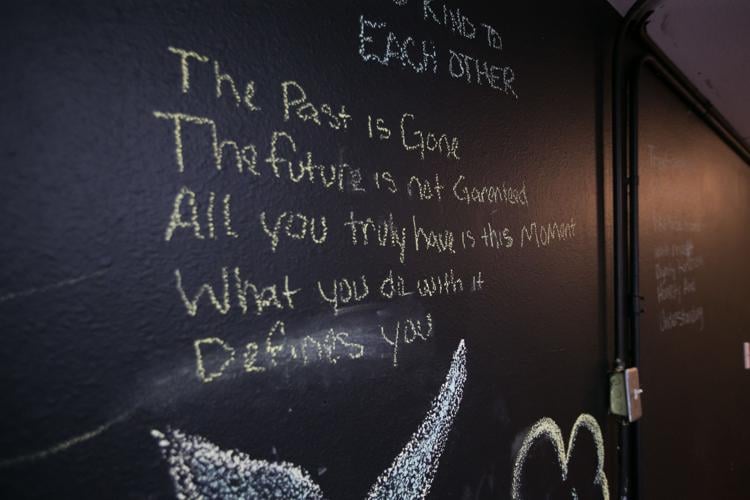 KIND TO
EACH OTHER
The Past is Gone
The future is not Garenteed
All you truly have is this Moment
What you do with it
Defines you
Understanding